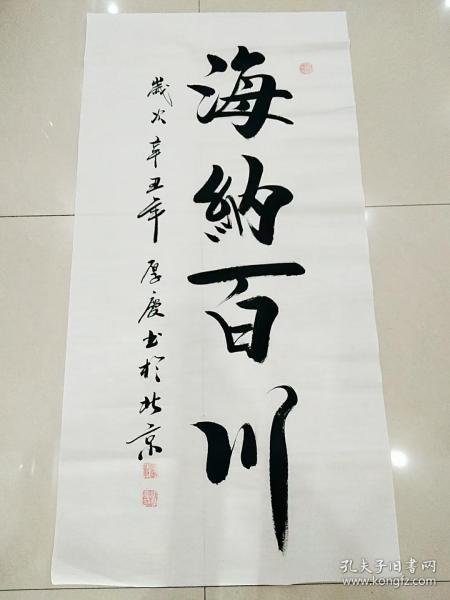 海納百川
歲次辛丑年 厚慶书於北京
孔夫子旧书网
www.kongfz.com